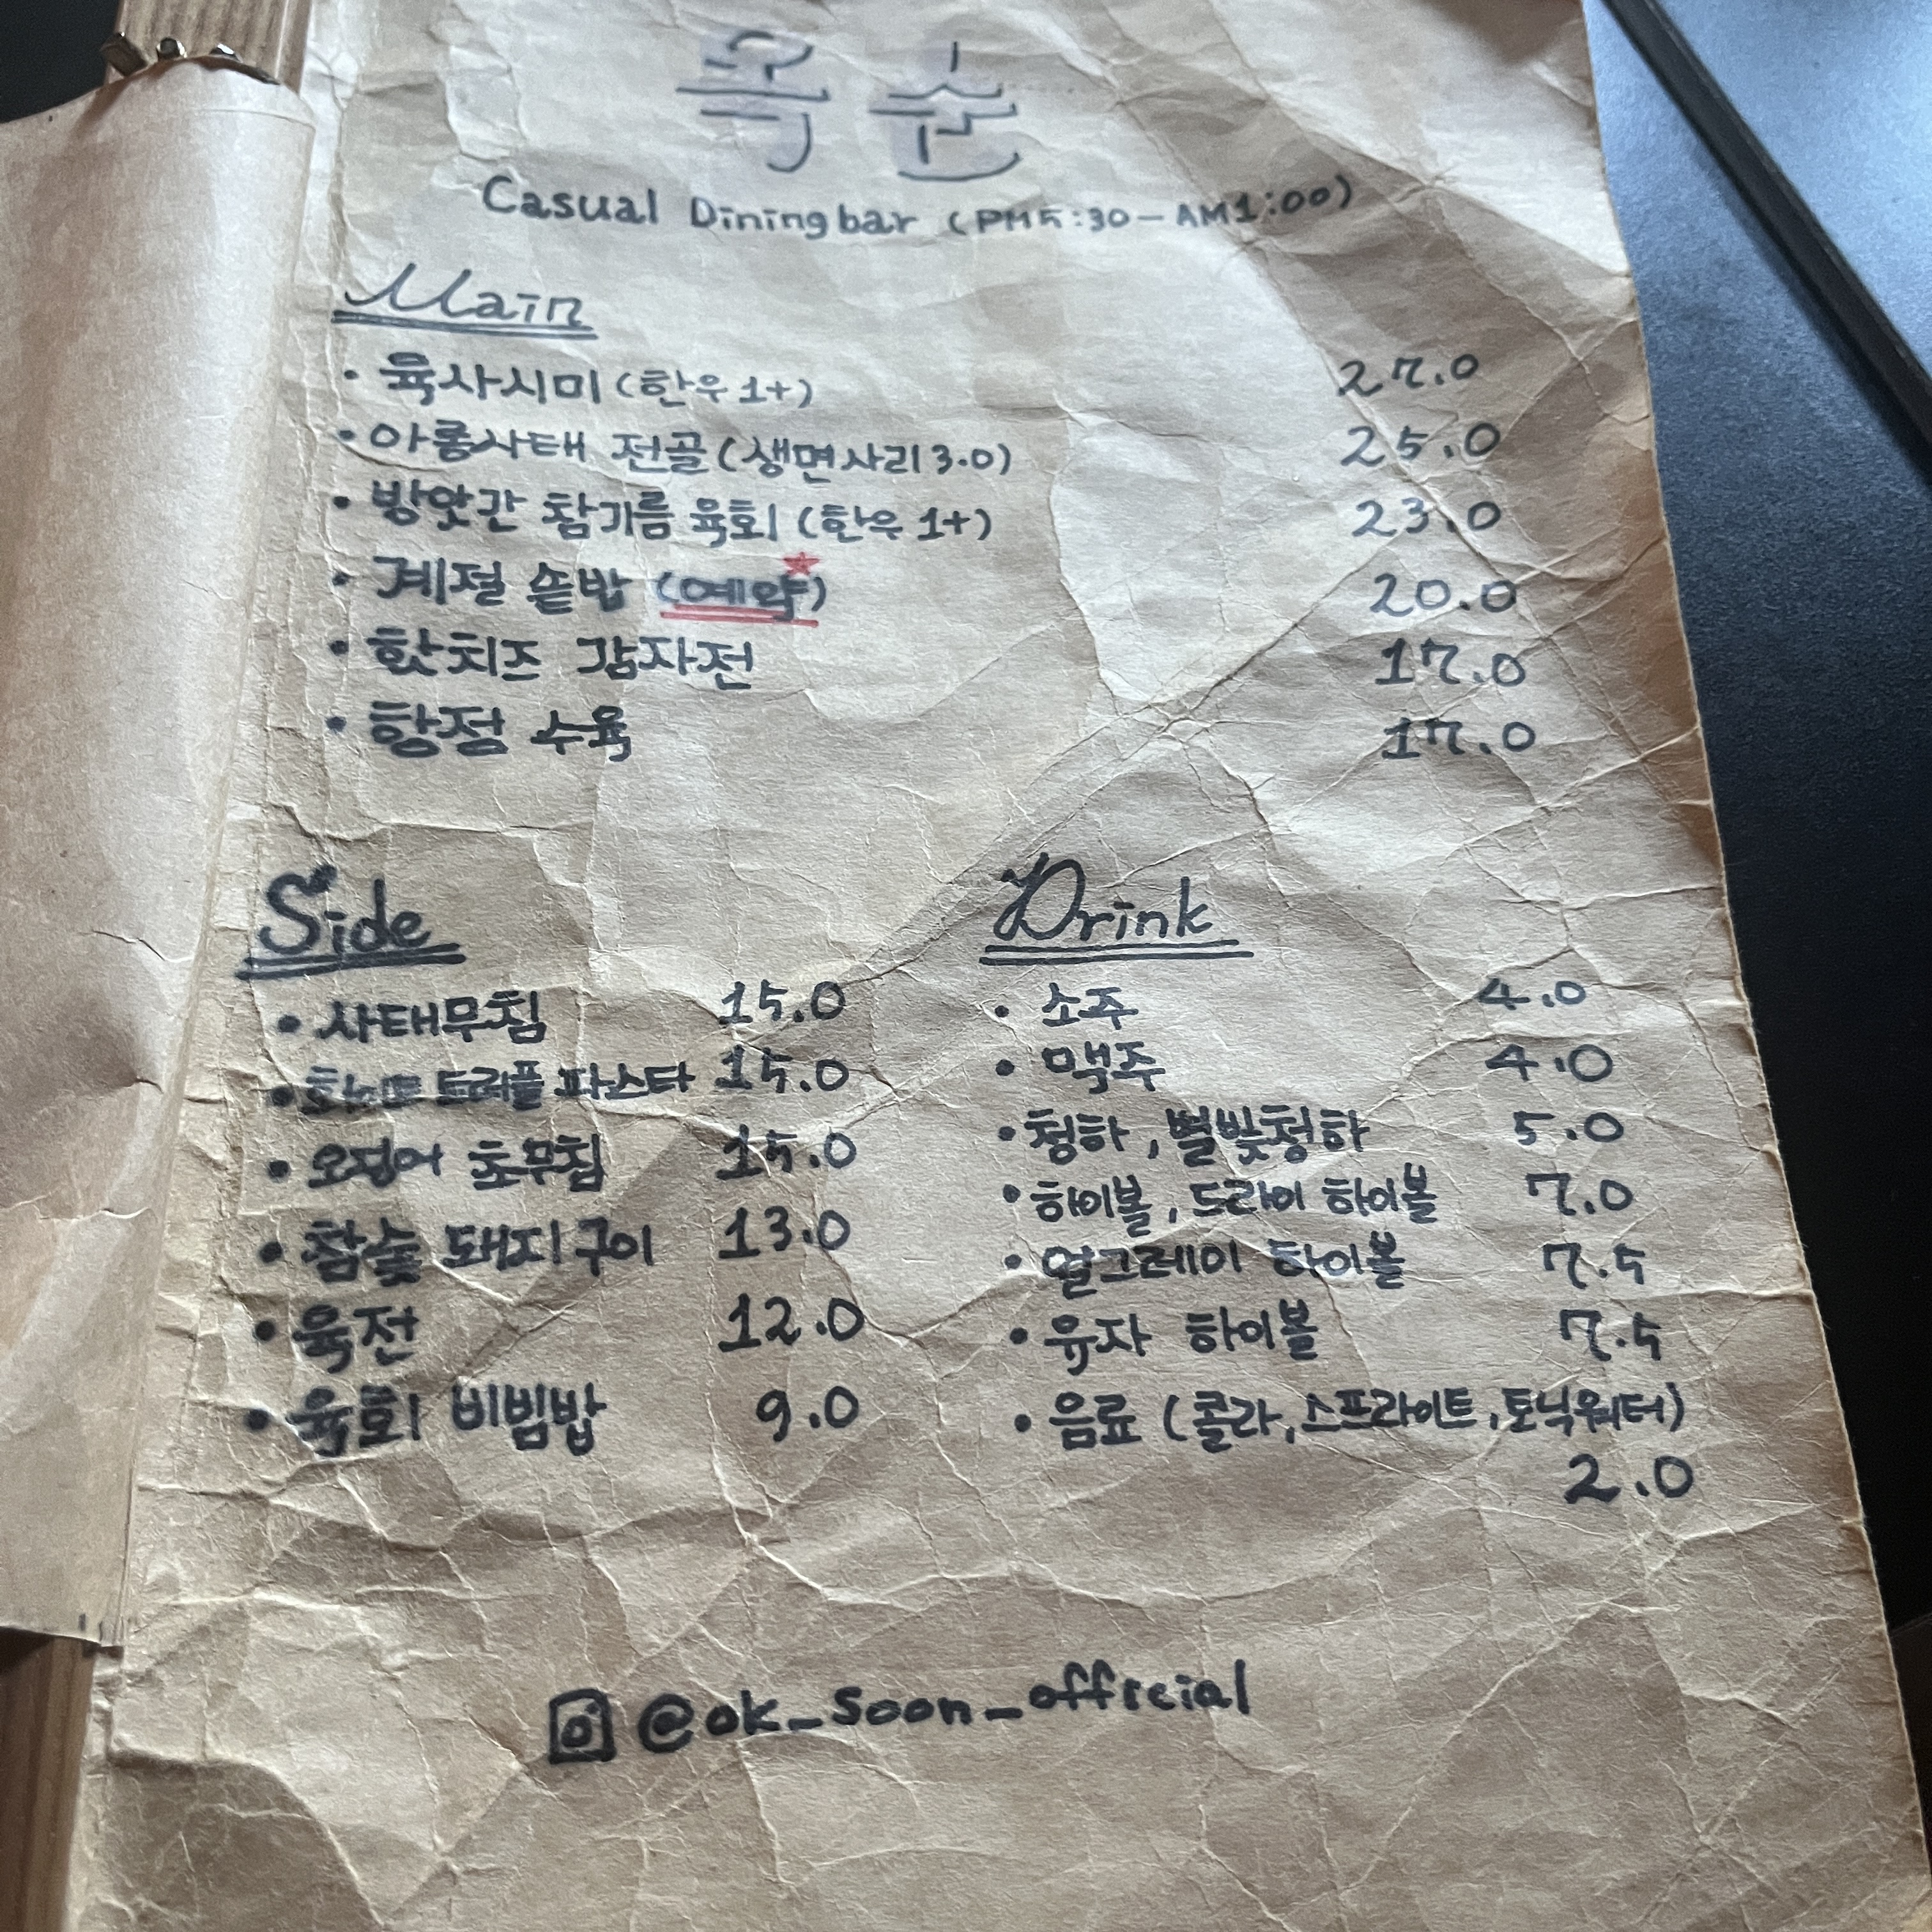 옥순
Casual Dining bar (PM5:30-AM1:00)
Main
· 육사시미 (한우 1+) 27.0
· 아롱사태 전골 (생면사리 3.0) 25.0
· 방앗간 참기름 육회 (한우 1+) 23.0
· 계절 솥밥 (예약★) 20.0
· 핫치즈 감자전 17.0
· 항정 수육 17.0
Side
· 사태무침 15.0
· 트러플 파스타 15.0
· 오징어 초무침 15.0
· 참숯 돼지구이 13.0
· 육전 12.0
· 육회 비빔밥 9.0
Drink
· 소주 4.0
· 맥주 4.0
· 청하, 별빛청하 5.0
· 하이볼, 드라이 하이볼 7.0
· 얼그레이 하이볼 7.5
· 유자 하이볼 7.5
· 음료 (콜라, 스프라이트, 토닉워터)
2.0
@ok_soon_official